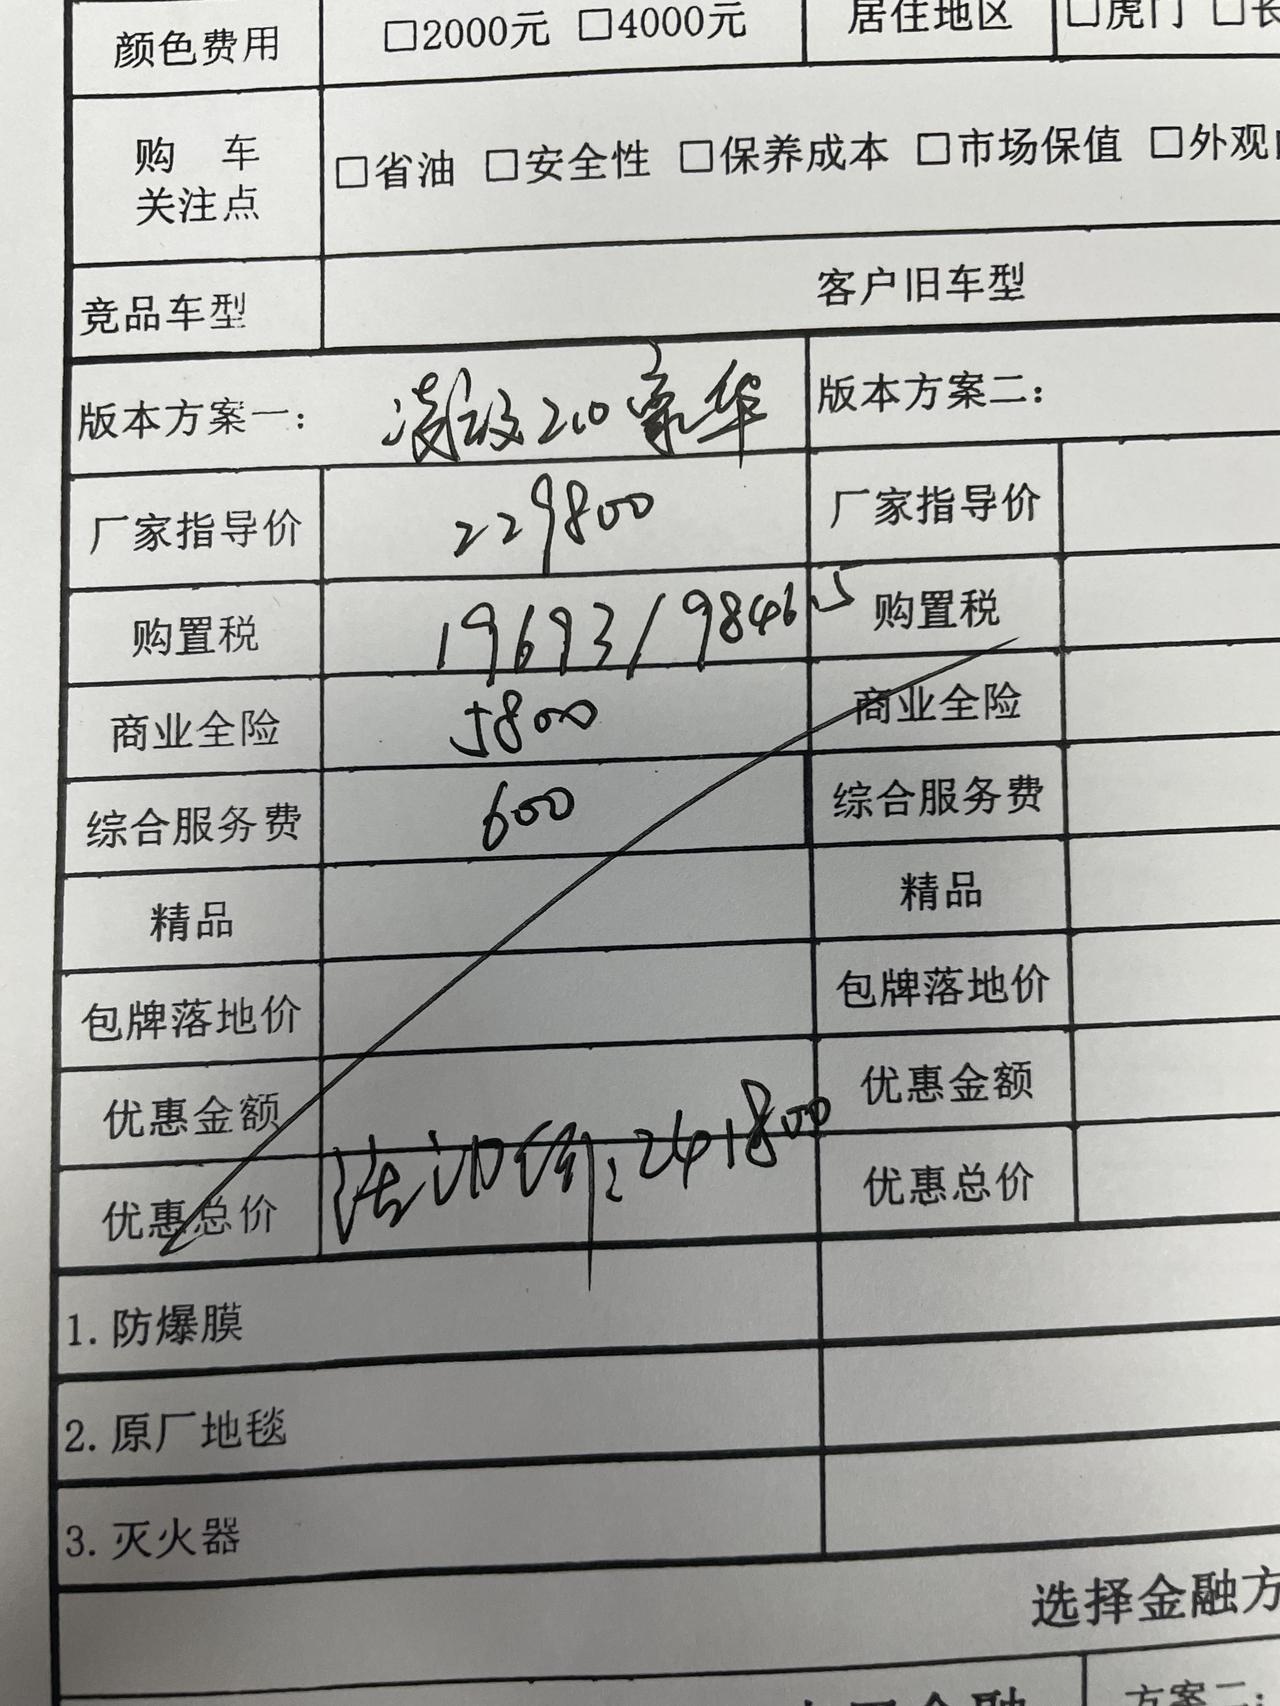 颜色费用 □2000元 □4000元 居住地区 □虎门 □长
购 车
关注点 □省油 □安全性 □保养成本 □市场保值 □外观
竞品车型 客户旧车型
版本方案一： 凌放 2.0 豪华 版本方案二：
厂家指导价 229800 厂家指导价
购置税 19693/9846.5 购置税
商业全险 5800 商业全险
综合服务费 600 综合服务费
精品 精品
包牌落地价 包牌落地价
优惠金额 优惠金额
优惠总价 241800 优惠总价
1.防爆膜
2.原厂地毯
3.灭火器
选择金融方
方案二：